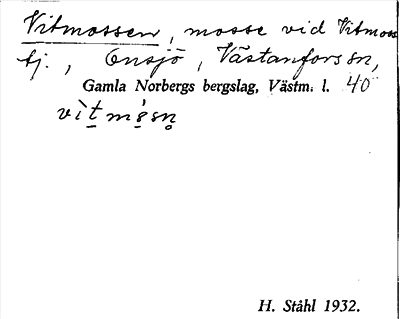 Vitmossen, mosse vid Vitmoss
tj., Ensjö, Västanfors sn,
Gamla Norbergs bergslag, Västm. l. 40
H. Ståhl 1932.